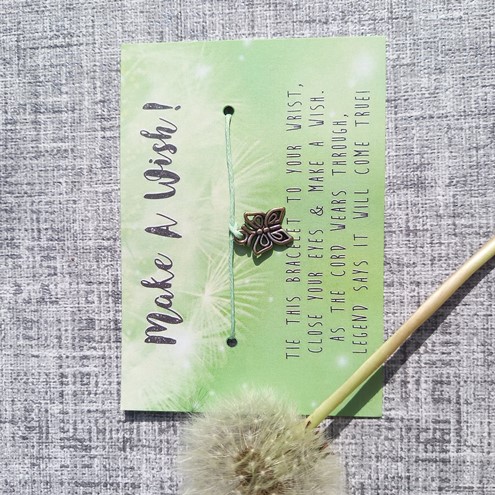 Make A Wish!
TIE THIS BRACELET TO YOUR WRIST,
CLOSE YOUR EYES & MAKE A WISH.
AS THE CORD WEARS THROUGH,
LEGEND SAYS IT WILL COME TRUE!